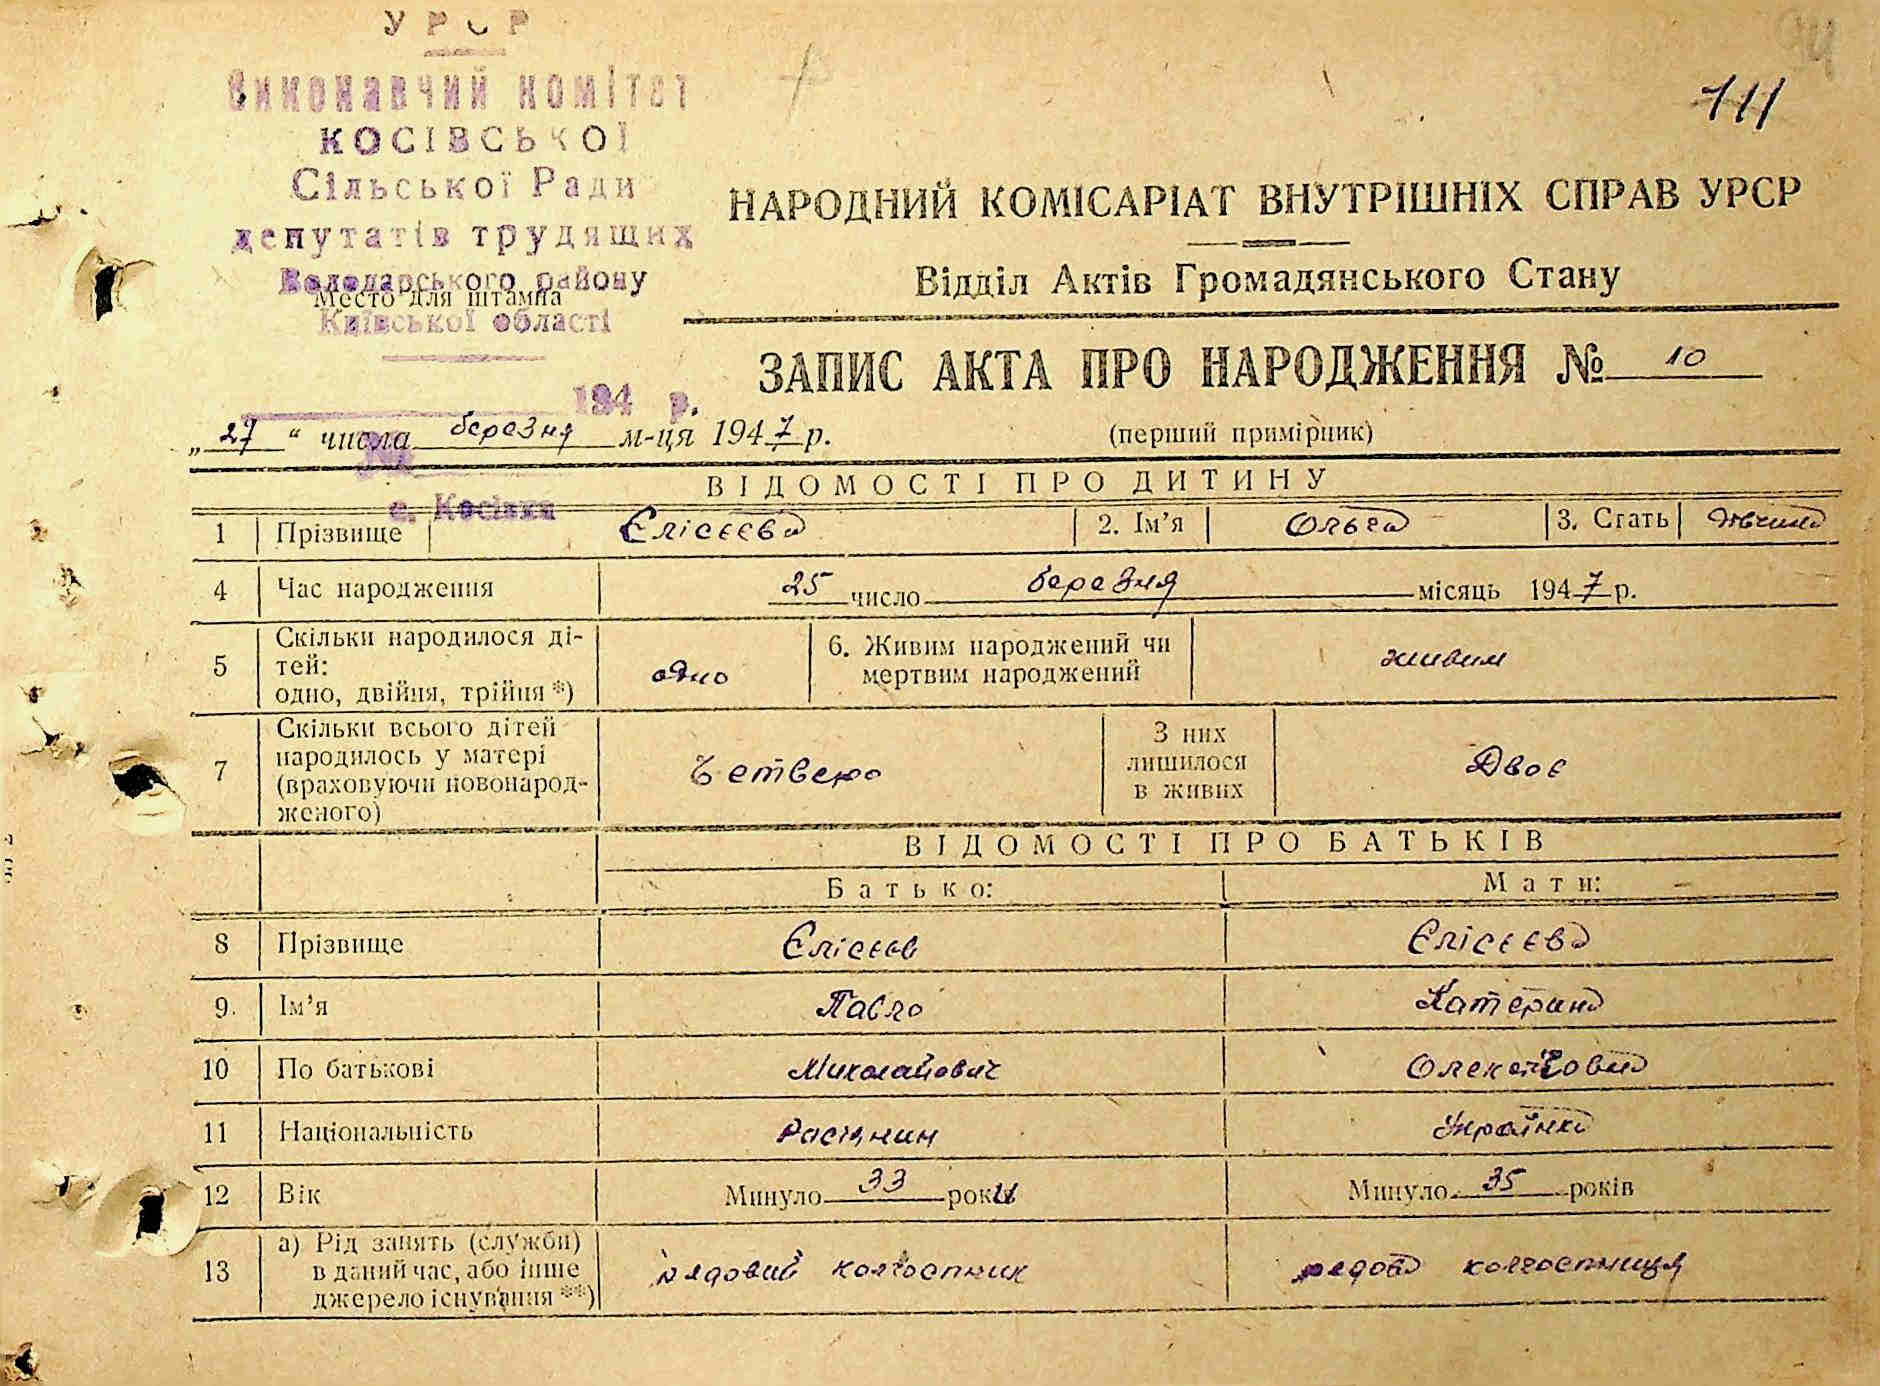 УРСР
Виконавчий комітет
КОСІВСЬКОЇ
Сільської Ради
депутатів трудящих
Володарського району
Место для штампа
Київської області
194 р.
№
с. Косівка
111
НАРОДНИЙ КОМІСАРІАТ ВНУТРІШНІХ СПРАВ УРСР
Відділ Актів Громадянського Стану
ЗАПИС АКТА ПРО НАРОДЖЕННЯ № 10
„27“ числа березня м-ця 1947 р.
(перший примірник)
ВІДОМОСТІ ПРО ДИТИНУ
1 Прізвище Єлісєєва 2. Ім’я Ольга 3. Стать дівчина
4 Час народження 25 число березня місяць 1947 р.
5 Скільки народилося ді-
тей:
одно, двійня, трійня *) одно 6. Живим народжений чи
мертвим народжений живим
7 Скільки всього дітей
народилось у матері
(враховуючи новонарод-
женого) Четверо З них
лишилося
в живих Двоє
ВІДОМОСТІ ПРО БАТЬКІВ
Батько: Мати:
8 Прізвище Єлісєєв Єлісєєва
9. Ім’я Павло Катерина
10 По батькові Миколайович
11 Національність Росіянин Українка
12 Вік Минуло 33 роки Минуло 35 років
13 а) Рід занять (служби)
в даний час, або інше
джерело існування **) рядовий колгоспник рядова колгоспниця